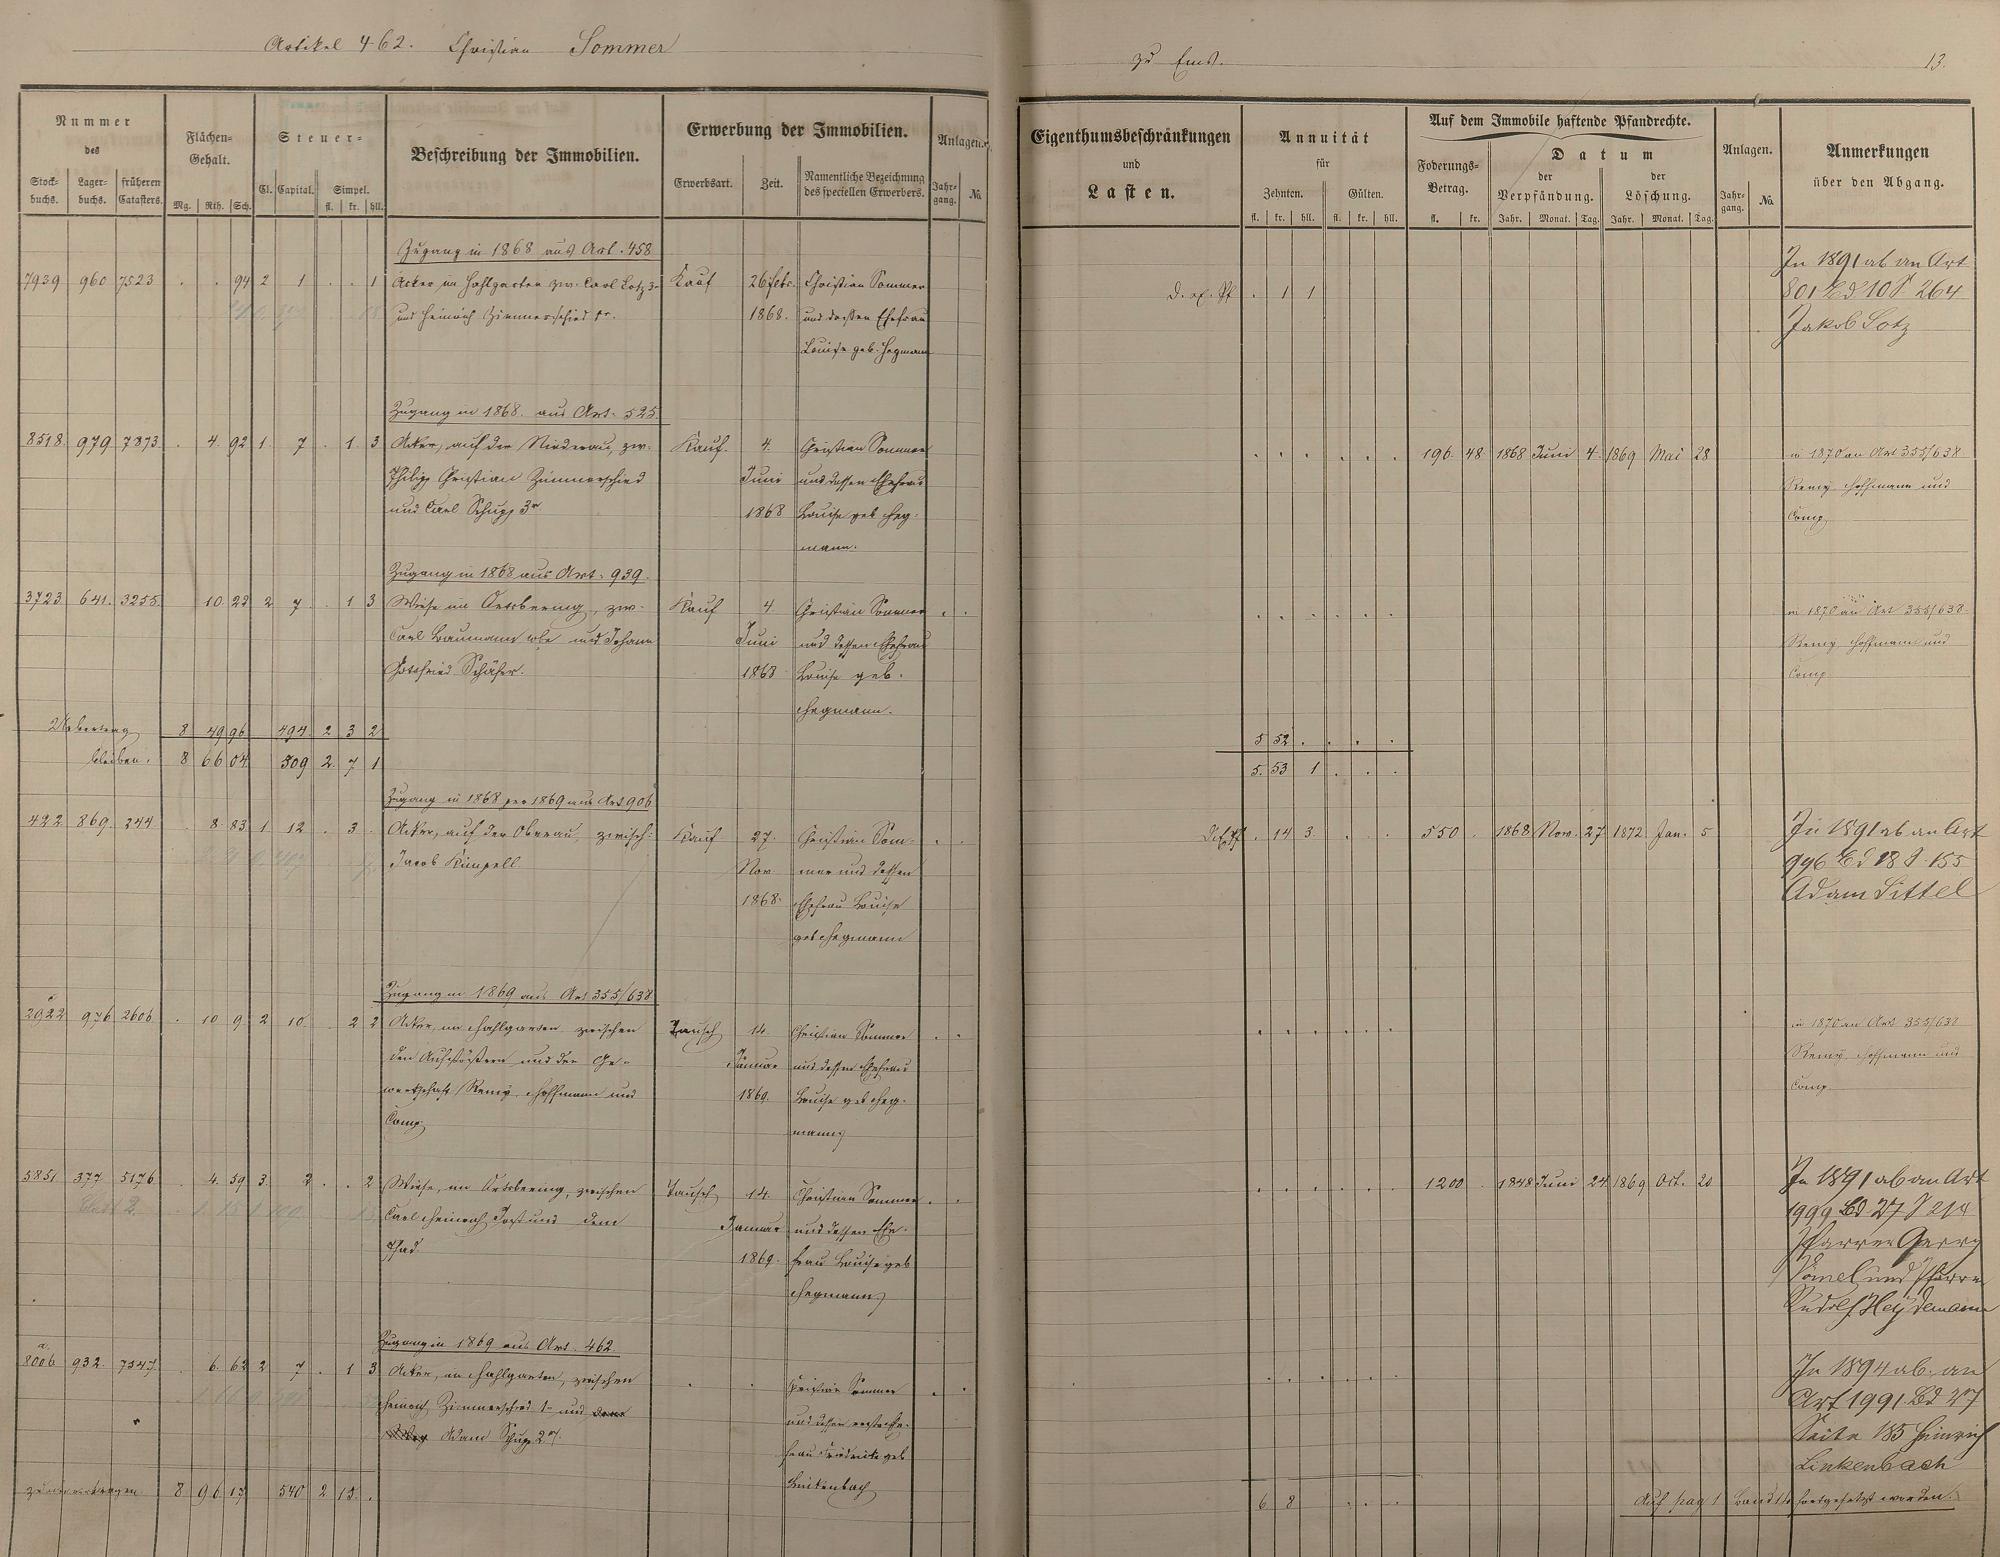 Artikel 462. Christian Sommer
zu Ems.
13.
Nummer
des
Stock-
buchs.
Lager-
buchs.
früheren
Catasters.
Flächen-
Gehalt.
Mg. Rth. Sch.
Steuer-
Cl. Capital. Simpel.
fl. kr. hll.
Beschreibung der Immobilien.
Erwerbung der Immobilien.
Erwerbsart. Zeit.
Namentliche Bezeichnung
des speciellen Erwerbers.
Anlagen.
Jahr-
gang. No.
Eigenthumsbeschränkungen
und
Lasten.
Annuität
für
Zehnten. Gülten.
fl. kr. hll. fl. kr. hll.
Auf dem Immobile haftende Pfandrechte.
Foderungs-
Betrag.
fl. kr.
Datum
der
Verpfändung.
Jahr. Monat. Tag.
der
Löschung.
Jahr. Monat. Tag.
Anlagen.
Jahr-
gang. No.
Anmerkungen
über den Abgang.
Zugang in 1868 aus Art. 458
7939 960 7523 . . 94 2 1 . . 1 Acker im Hahlgarten zw. Carl Lotz 3r
und Heinrich Zimmerschied 1r.
Kauf 26 febr.
1868.
Christian Sommer
und dessen Ehefrau
Louise geb. Hegmann
. 1 1
In 1891 ab an Art
801 Bd 10 S 264
Jakob Lotz
Zugang in 1868. aus Art. 525.
8518. 979 7873. . 4. 92 1. 7 . 1. 3 Acker, auf der Niederau, zw.
Philipp Christian Zimmerschied
und Carl Schupp 3r
Kauf. 4.
Juni
1868
Christian Sommer
und dessen Ehefrau
Louise geb. Heg-
mann.
196. 48. 1868 Juni 4. 1869 Mai 28
in 1870 an Art 355/638
Remy, Hoffmann und
Comp.
Zugang in 1868 aus Art. 939.
3723. 641. 3255. 10. 22 2 7 . 1 3 Wiese im Ortsbering, zw.
Carl Baumann wbe und Johann
Gottfried Schäfer.
Kauf 4.
Juni
1868
Christian Sommer
und dessen Ehefrau
Louise geb.
Hegmann.
in 1870 an Art 355/638
Remy, Hoffmann und
Comp
Uebertrag 8 49 96 494. 2 3 2
5 52 .
bleiben. 8 66 04. 509 2. 7 1
5. 53 1
Zugang in 1868 per 1869 aus Art 906
422. 869. 344 . 8. 83 1 12 . 3 . Acker, auf der Oberau, zwisch:
Jacob Kümpell
Kauf 27.
Nov
1868.
Christian Som-
mer und dessen
Ehefrau Louise
geb Hegmann
. 14 3
550 . 1868 Nov. 27 1872. Jan. 5
In 1891 ab an Art
996 Bd 18 S. 155
Adam Sittel
Zugang in 1869 aus Art 355/638
2922 976 2606 . 10 9. 2 10. . 2 2 Acker, im Hahlgarten zwischen
den Aufstößern und der Ge-
werkschaft Remy, Hoffmann und
Comp.
Tausch 14.
Januar
1869.
Christian Sommer
und dessen Ehefrau
Louise geb. Heg-
mann
in 1870 an Art 355/638
Remy, Hoffmann und
Comp.
5851 377 5176 . 4. 59 3. 2 . . 2 Wiese, im Ortsbering, zwischen
Carl Heinrich Jost und dem
Pfad
Tausch 14.
Januar
1869.
Christian Sommer
und dessen Ehe-
frau Louise geb
Hegmann
1200 . 1848 Juni 24 1869 Oct. 20
In 1891 ab an Art
1999 Bd 27 S 214
Pfarrer Garry
Vömel und Pfarrer
Rudolf Heydemann
Zugang in 1869 aus Art. 462.
a.
8006 932. 7547. . 6. 62 2 7 . 1 3 Acker, im Hahlgarten, zwischen
Heinrich Zimmerschied 1r und dem
Weg Adam Schupp 2r.
Christian Sommer
und dessen erste Ehe-
frau Friedricke geb
Linkenbach
In 1894 ab. an
Art 1991 Bd 27
Seite 185 Heinrich
Linkenbach
zu übertragen 8 96 17 540 2 15. .
6 8
Auf pag 1 Band 11b fortgesetzt worden.